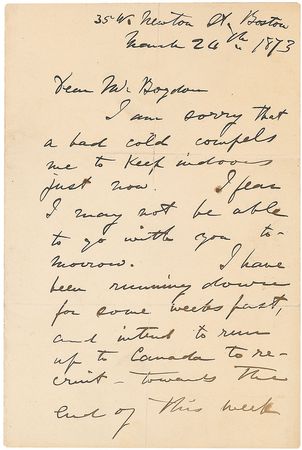 35 W. Newton St, Boston
March 24th 1873
Dear Mr Bogdon
I am sorry that
a bad cold compels
me to keep indoors
just now. I fear
I may not be able
to go with you to-
morrow. I have
been running down
for some weeks past,
and intend to run
up to Canada to re-
cruit - towards the
end of this week